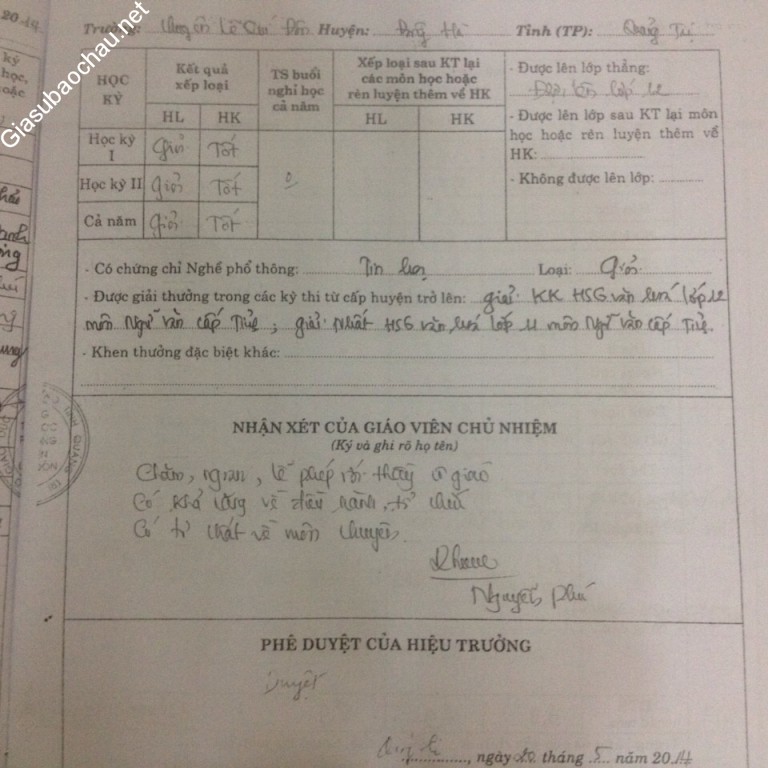 Giasubaochau.net
Trường: Chuyên Lê Quí Đôn Huyện: Đông Hà Tỉnh (TP): Quảng Trị
HỌC KỲ
Kết quả xếp loại
TS buổi nghỉ học cả năm
Xếp loại sau KT lại các môn học hoặc rèn luyện thêm về HK
HL HK HL HK
Học kỳ I Giỏi Tốt
Học kỳ II Giỏi Tốt 0
Cả năm Giỏi Tốt
- Được lên lớp thẳng:
Được lên lớp 12
- Được lên lớp sau KT lại môn
học hoặc rèn luyện thêm về
HK:
- Không được lên lớp:
- Có chứng chỉ Nghề phổ thông: Tin học Loại: Giỏi
- Được giải thưởng trong các kỳ thi từ cấp huyện trở lên: giải KK HSG văn hoá lớp 12
môn Ngữ văn cấp Tỉnh, giải Nhất HSG văn hoá lớp 11 môn Ngữ văn cấp Tỉnh.
- Khen thưởng đặc biệt khác:
NHẬN XÉT CỦA GIÁO VIÊN CHỦ NHIỆM
(Ký và ghi rõ họ tên)
Chăm, ngoan, lễ phép với thầy cô giáo
Có khả năng về điều hành, tổ chức
Có tố chất về môn chuyên.
Nguyễn Phú
PHÊ DUYỆT CỦA HIỆU TRƯỞNG
Duyệt
, ngày 20 tháng 5 năm 2014